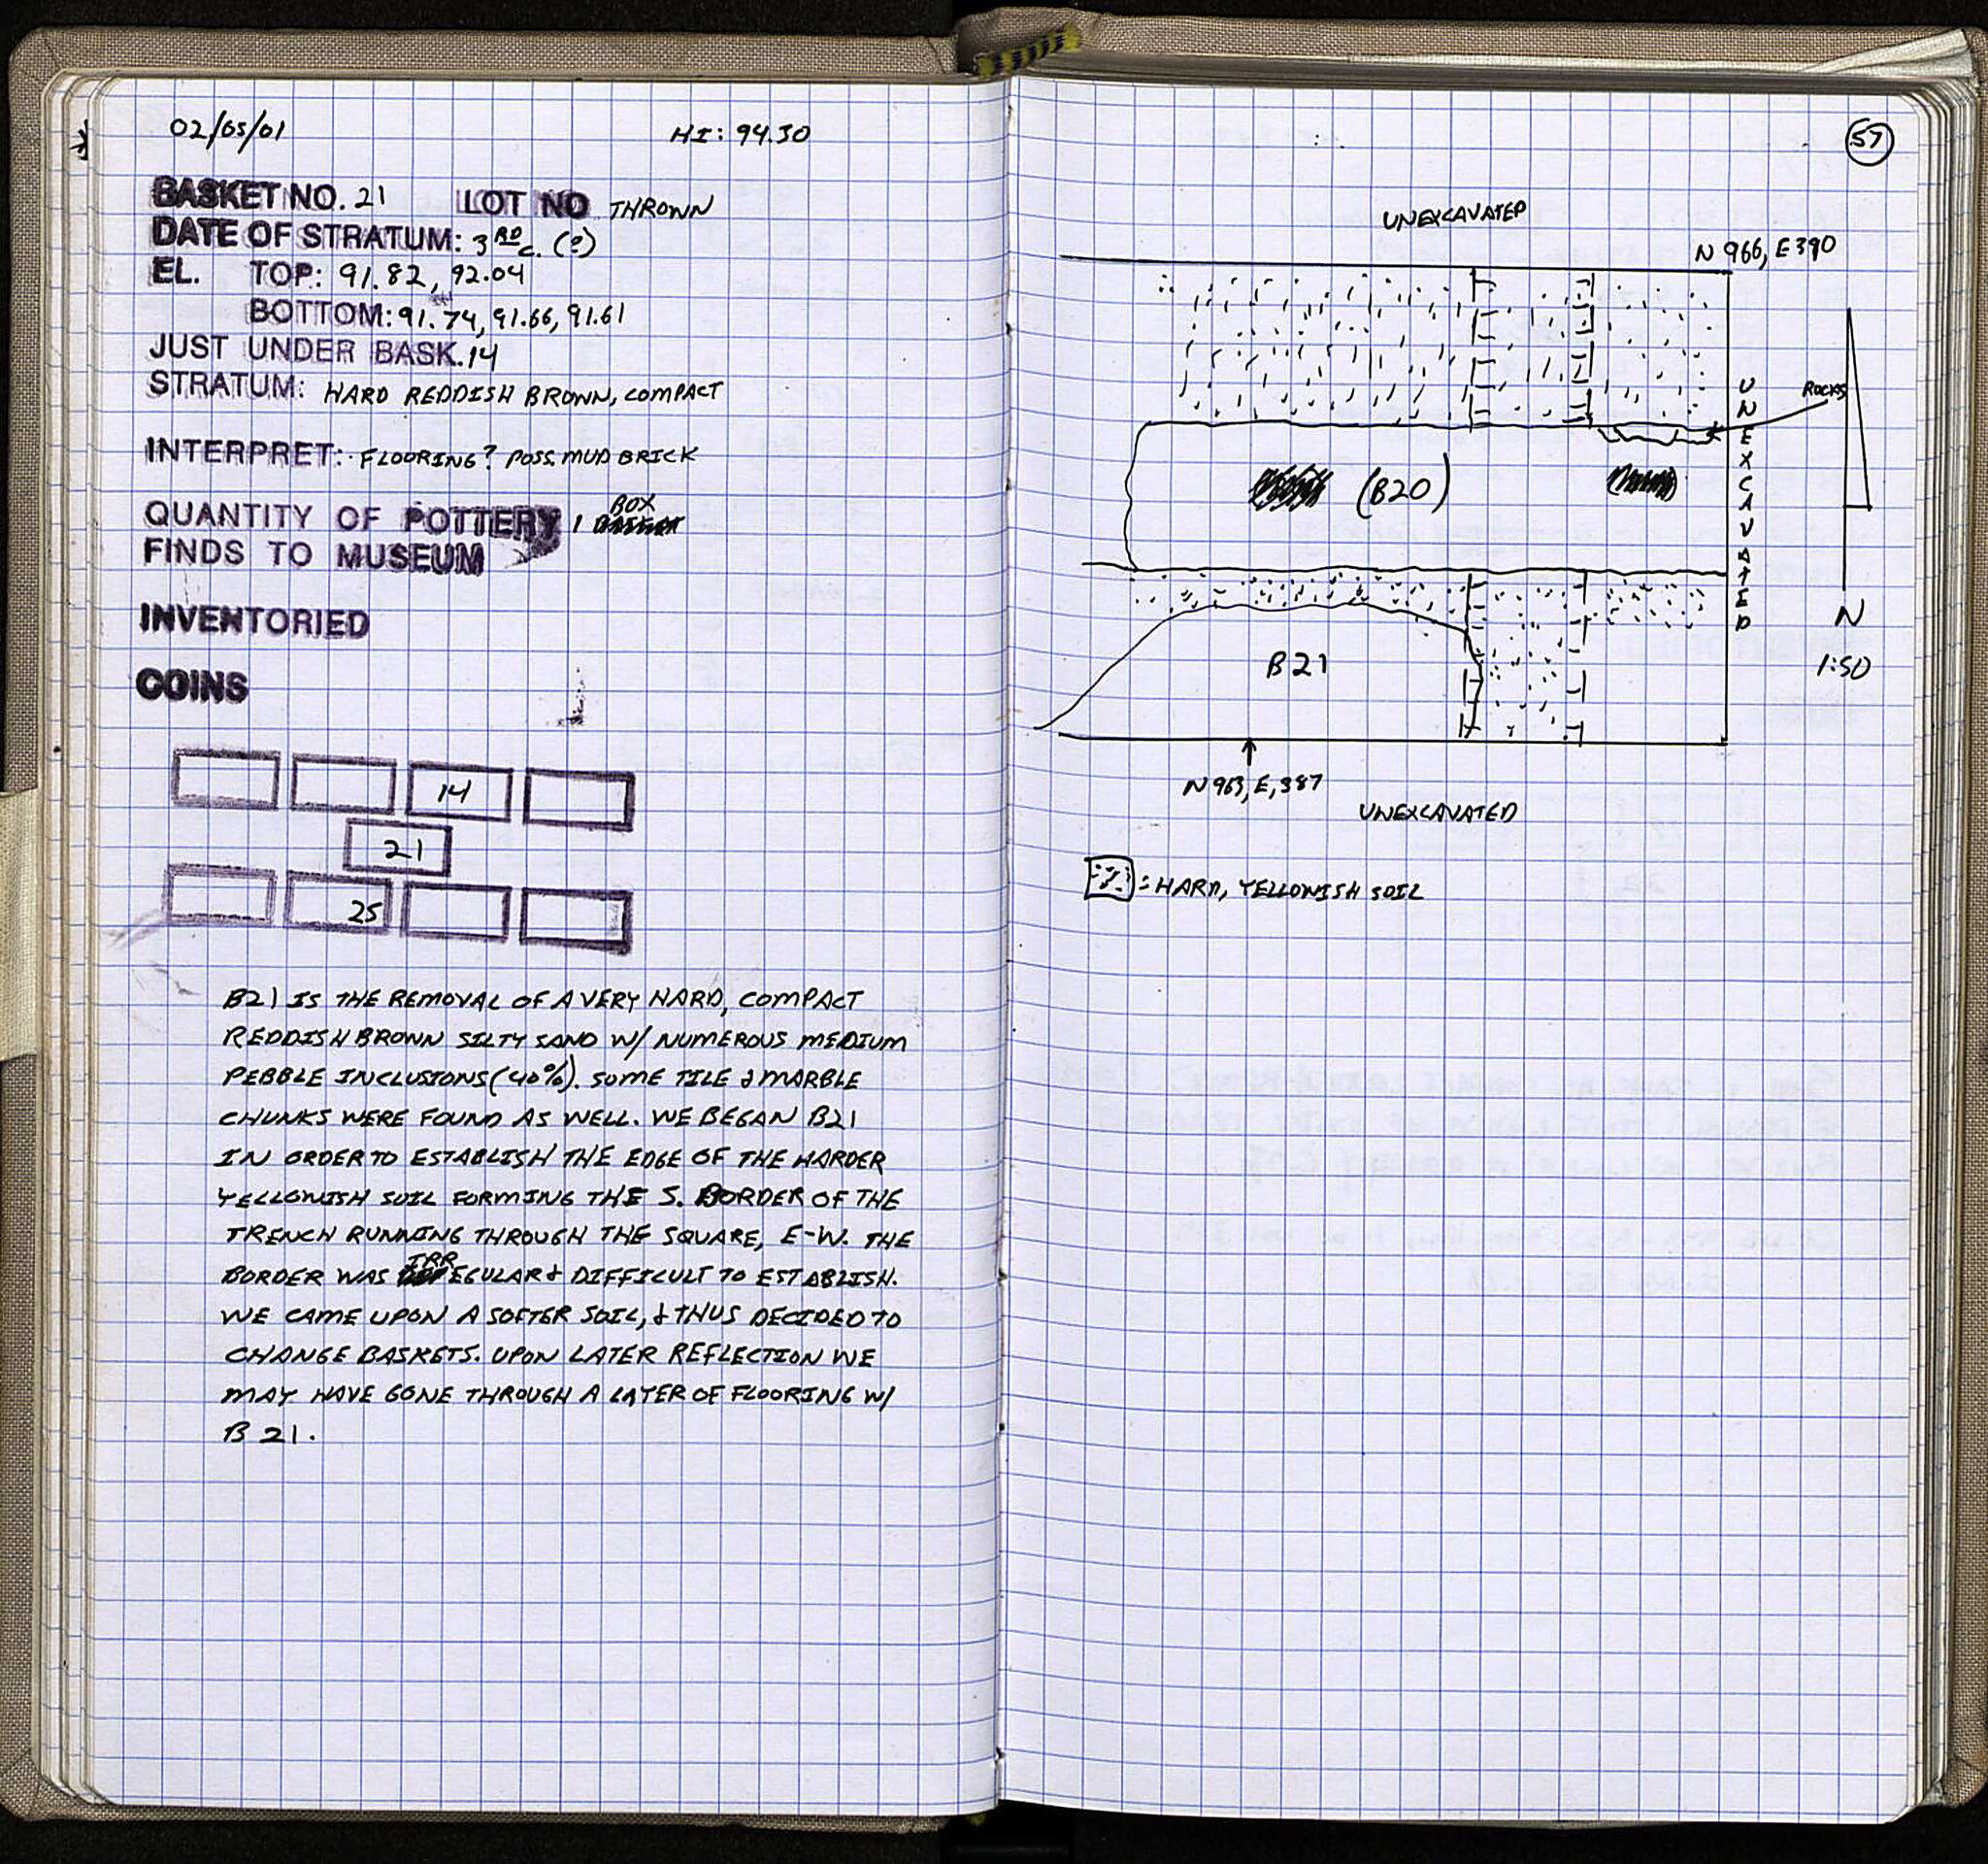 02/05/01 HI: 94.30
BASKET NO. 21 LOT NO THROWN
DATE OF STRATUM: 3RD C. (?)
EL. TOP: 91.82, 92.04
BOTTOM: 91.74, 91.66, 91.61
JUST UNDER BASK. 14
STRATUM: HARD REDDISH BROWN, COMPACT
INTERPRET: FLOORING? POSS. MUD BRICK
BOX
QUANTITY OF POTTERY 1
FINDS TO MUSEUM
INVENTORIED
COINS
14
21
25
B21 IS THE REMOVAL OF A VERY HARD, COMPACT
REDDISH BROWN SILTY SAND W/ NUMEROUS MEDIUM
PEBBLE INCLUSIONS (40%). SOME TILE & MARBLE
CHUNKS WERE FOUND AS WELL. WE BEGAN B21
IN ORDER TO ESTABLISH THE EDGE OF THE HARDER
YELLOWISH SOIL FORMING THE S. BORDER OF THE
TRENCH RUNNING THROUGH THE SQUARE, E-W. THE
BORDER WAS IRREGULAR & DIFFICULT TO ESTABLISH.
WE CAME UPON A SOFTER SOIL, & THUS DECIDED TO
CHANGE BASKETS. UPON LATER REFLECTION WE
MAY HAVE GONE THROUGH A LAYER OF FLOORING W/
B 21.
57
UNEXCAVATED
N 966, E 390
ROCKS
UNEXCAVATED
(B20)
N
1:50
B21
N 963, E, 387
UNEXCAVATED
= HARD, YELLOWISH SOIL